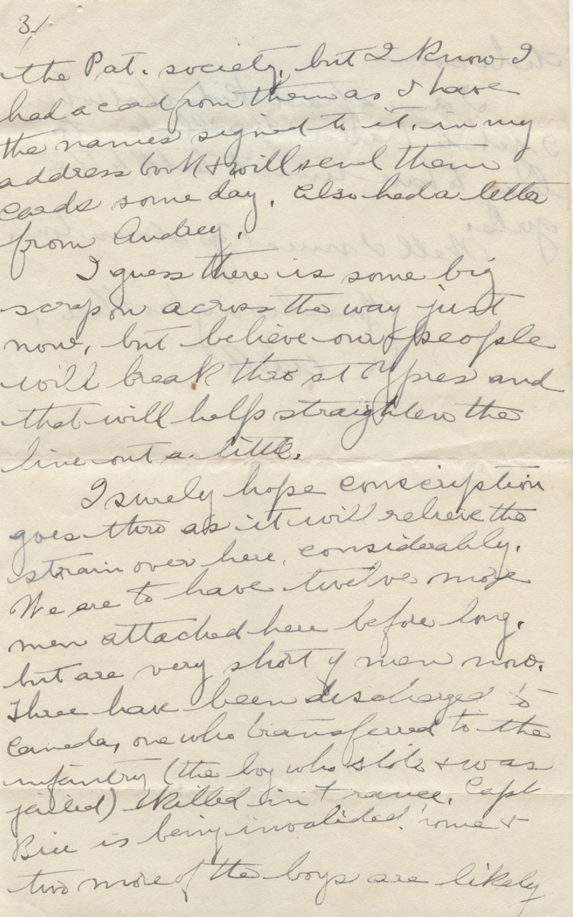 3/
the Pat. society, but I know I
had a card from them as I have
the names signed to it, in my
address book & will send them
cards some day. Also had a letter
from Audrey.
I guess there is some big
scrap on across the way just
now, but believe our people
will break thro at Ypres and
that will help straighten the
line out a little.
I surely hope conscription
goes thro as it will relieve the
strain over here, considerably.
We are to have twelve more
men attached here before long,
but are very short of men now.
Three have been discharged to
Canada, one who transferred to the
infantry (the boy who stole & was
jailed) killed in France. Capt
is being invalided home &
two more of the boys are likely